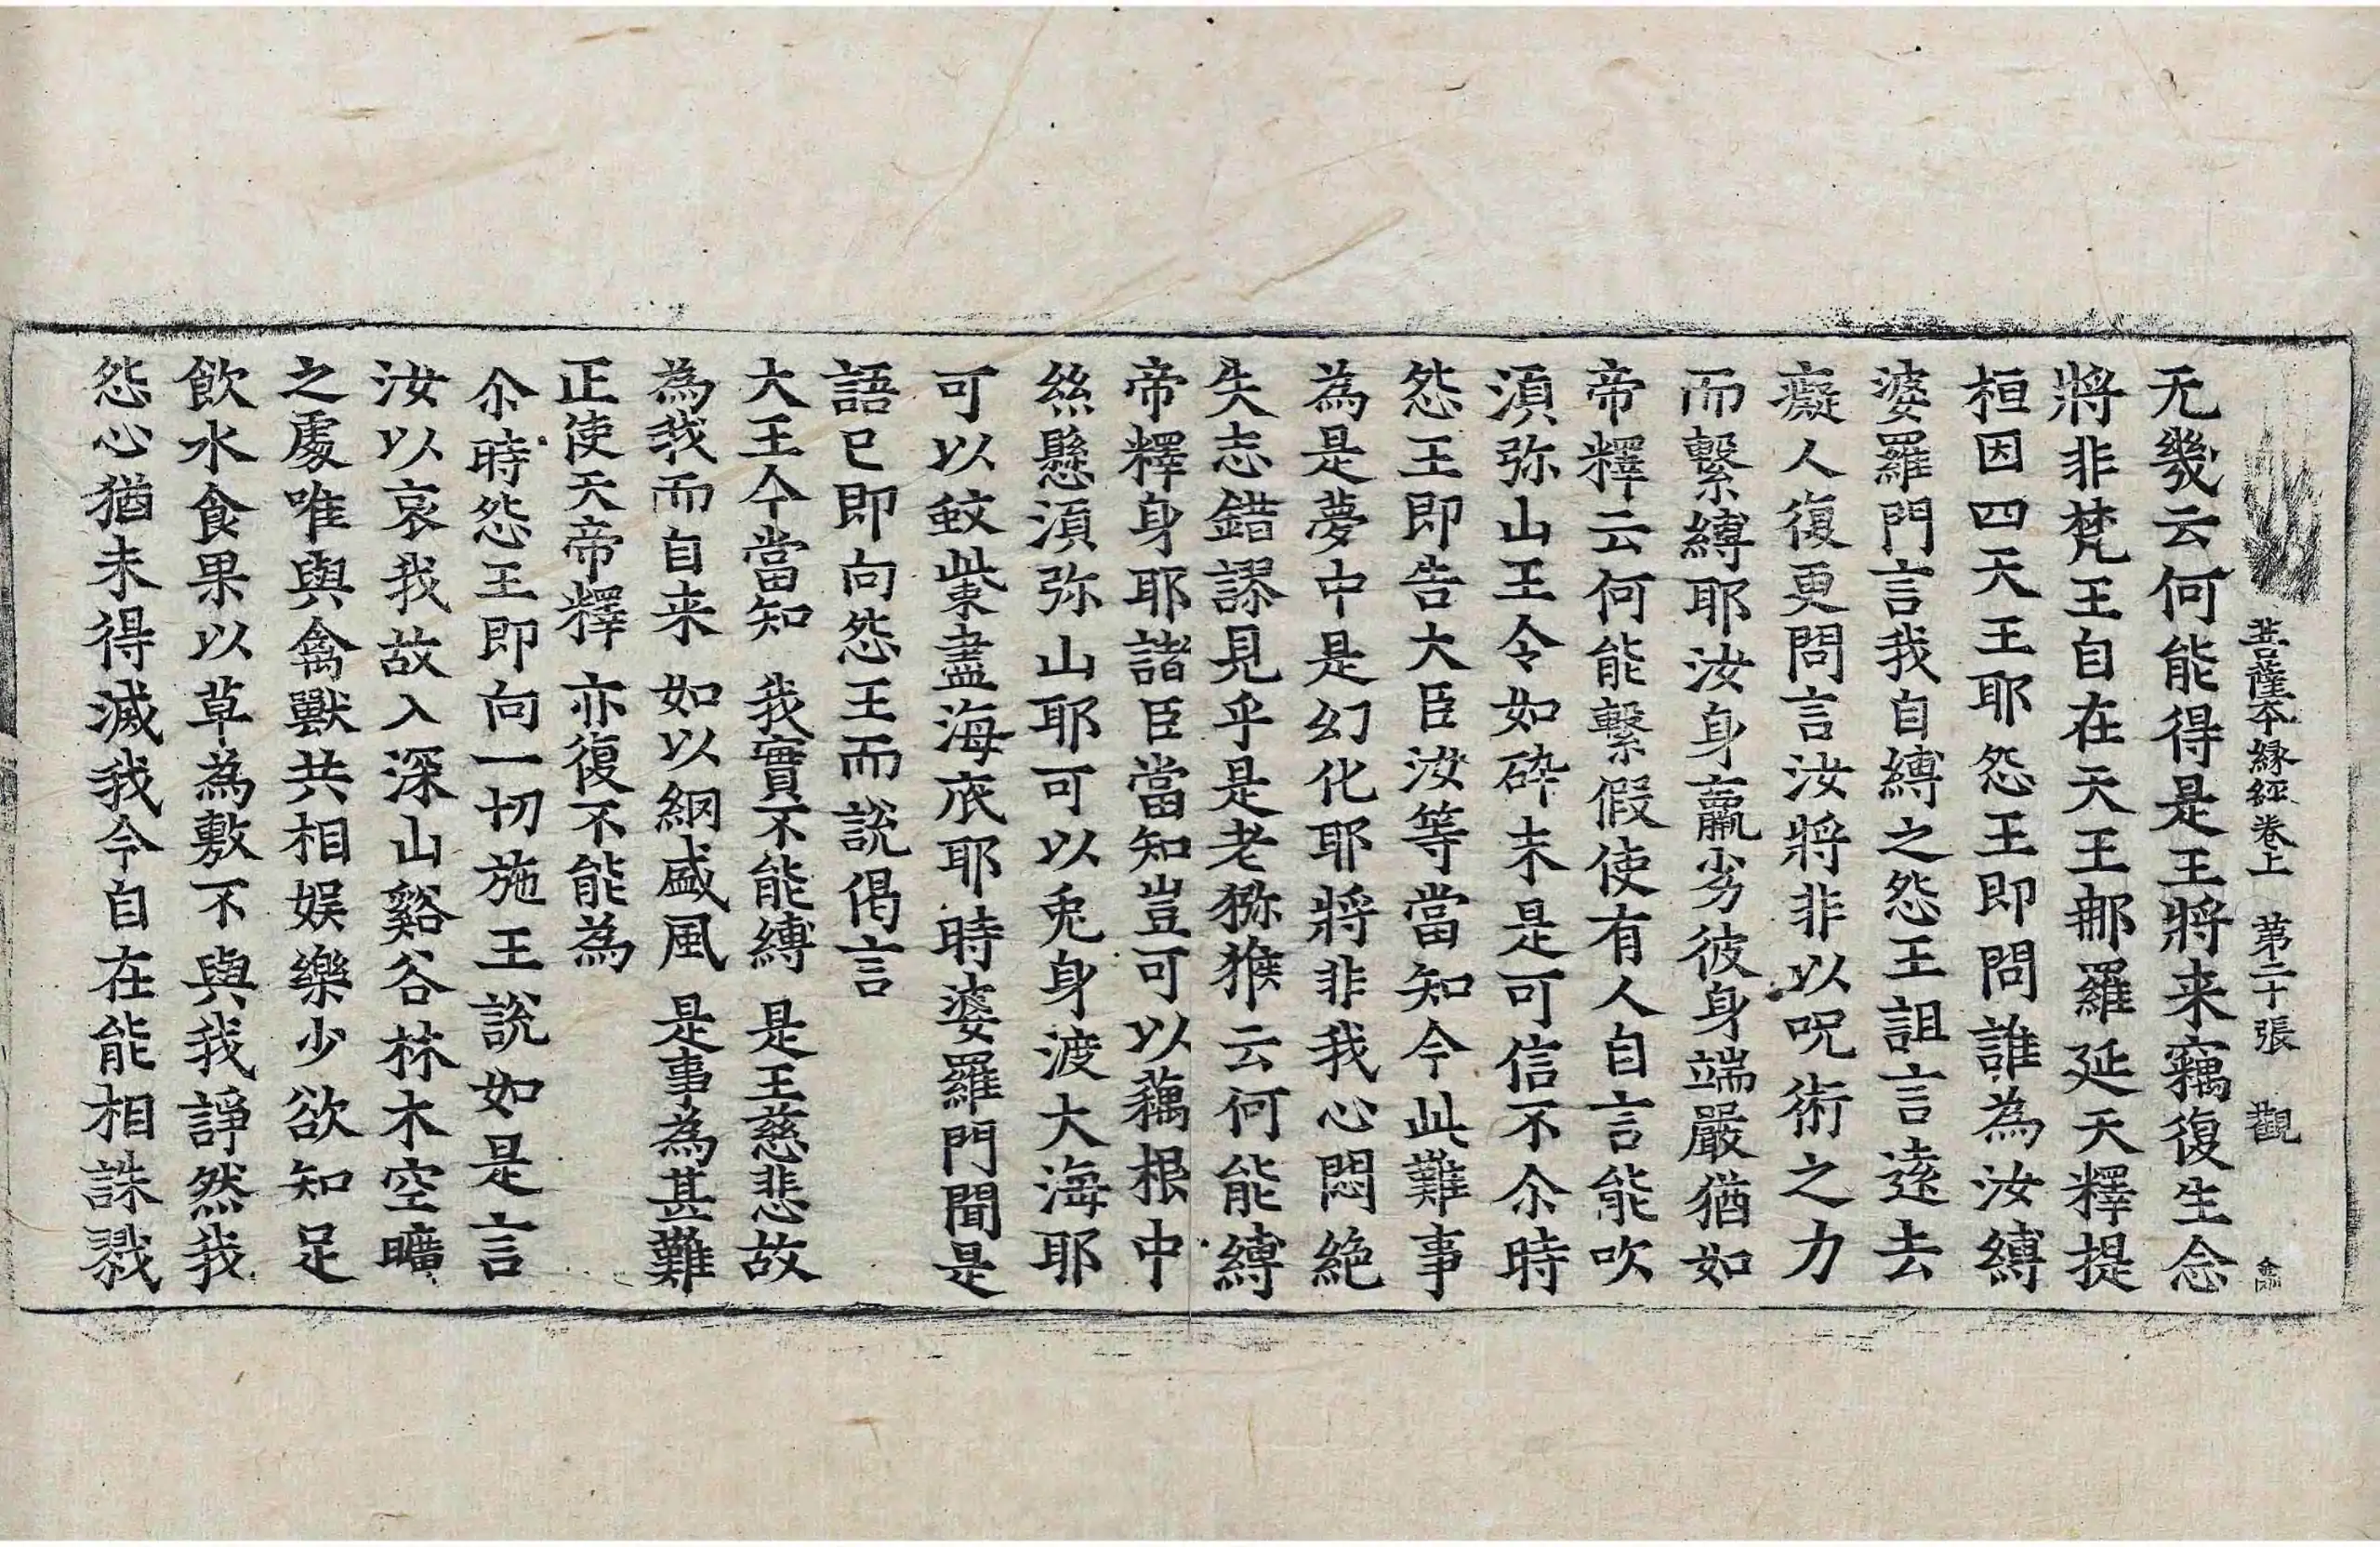 菩薩本縁經卷上 第二十張 觀
无幾云何能得是王將来竊復生念
將非梵王自在天王那羅延天釋提
桓因四天王耶怨王即問誰為汝縛
婆羅門言我自縛之怨王詛言逺去
癡人復更問言汝將非以呪術之力
而繫縛耶汝身羸劣彼身端嚴猶如
帝釋云何能繫假使有人自言能吹
湏弥山王令如碎末是可信不尒時
怨王即告大臣汝等當知今此難事
為是夢中是幻化耶將非我心悶絶
失志錯謬見乎是老獼猴云何能縛
帝釋身耶諸臣當知豈可以藕根中
絲懸湏弥山耶可以兎身渡大海耶
可以蚊㭰盡海底耶時婆羅門聞是
語已即向怨王而說偈言
大王今當知 我實不能縛 是王慈悲故
為我而自来 如以網盛風 是事為甚難
正使天帝釋 亦復不能為
尒時怨王即向一切施王說如是言
汝以哀我故入深山谿谷林木空曠
之處唯與禽獸共相娱樂少欲知足
飲水食果以草為敷不與我諍然我
怨心猶未得滅我今自在能相誅戮